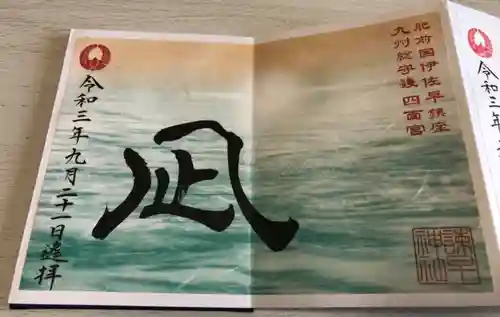 肥前国伊佐早鎮座
九州総守護 四面宮
凪
諫早神社
令和三年九月二十一日遥拝
令和三年